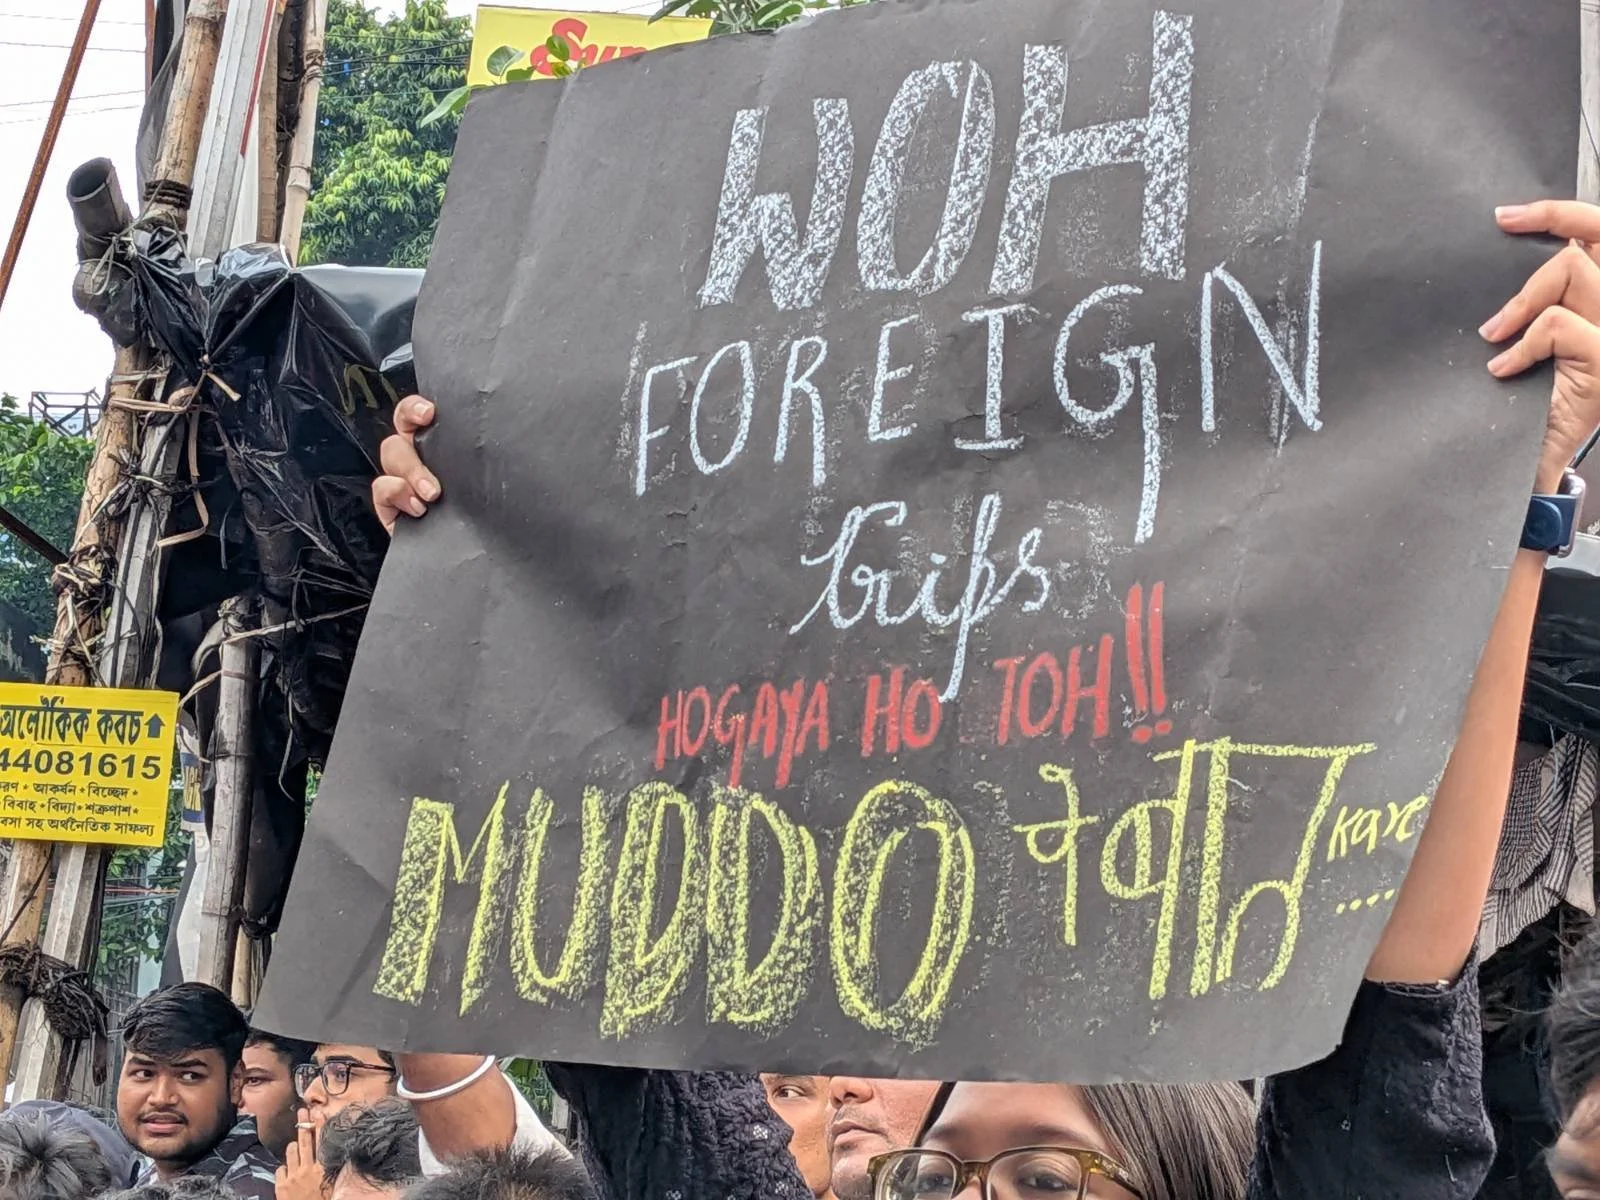 WOH
FOREIGN
trips
HOGAYA HO TOH!!
MUDDO पे बात kare ....
অলৌকিক কবচ
44081615
আকর্ষন * বিচ্ছেদ *
বিবাহ * বিদ্যা * শত্রুণাশ *
সহ অর্থনৈতিক সাফল্য